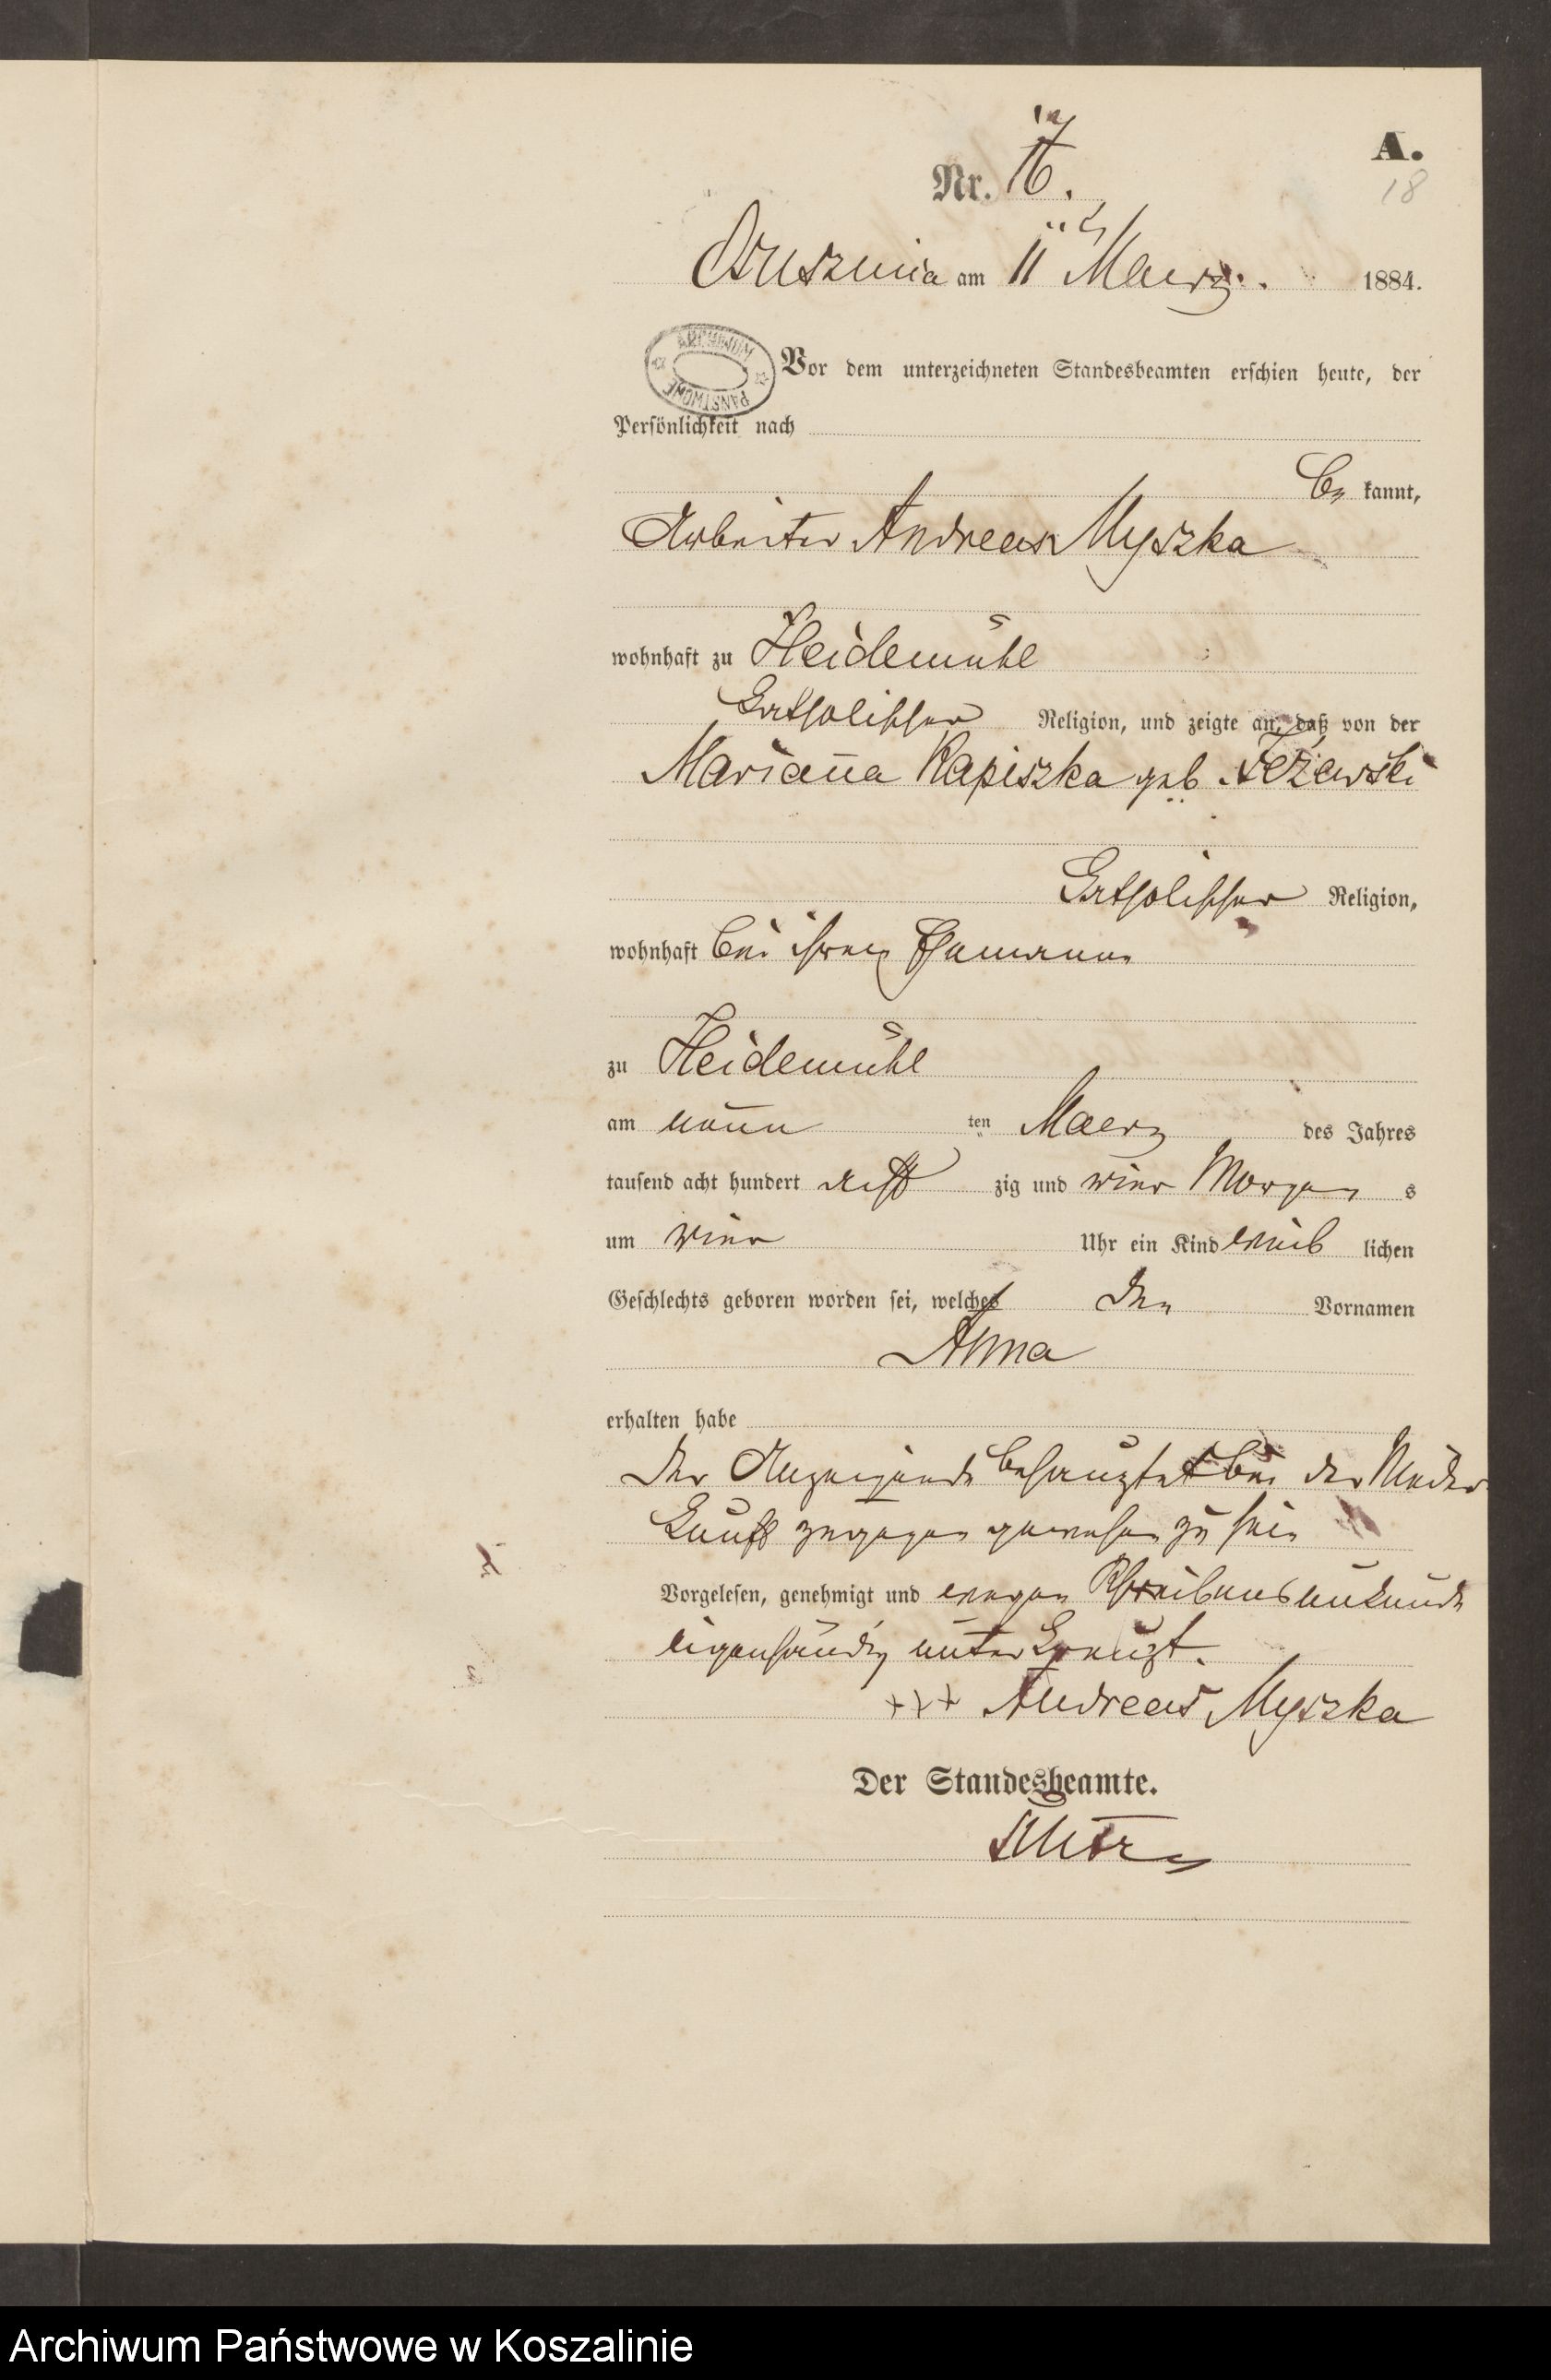 A.
Nr. 17.
18
Osusznica am 11 Maerz. 1884.
ARCHIWUM PAŃSTWOWE
Vor dem unterzeichneten Standesbeamten erschien heute, der
Persönlichkeit nach
be kannt,
Arbeiter Andreas Myszka
wohnhaft zu Heidemühl
katholischer Religion, und zeigte an, daß von der
Marianna Kapiszka geb.
katholischer Religion,
wohnhaft bei ihrem Ehemann
zu Heidemühl
am neun ten Maerz des Jahres
tausend acht hundert acht zig und vier Morgens
um vier Uhr ein Kind weib lichen
Geschlechts geboren worden sei, welches den Vornamen
Anna
erhalten habe
Der Anzeigende behauptet bei der Nieder
kunft zugegen gewesen zu sein
Vorgelesen, genehmigt und wegen Schreibensunkunde
eigenhändig unterkreuzt.
+++ Andreas Myszka
Der Standesbeamte.
Archiwum Państwowe w Koszalinie